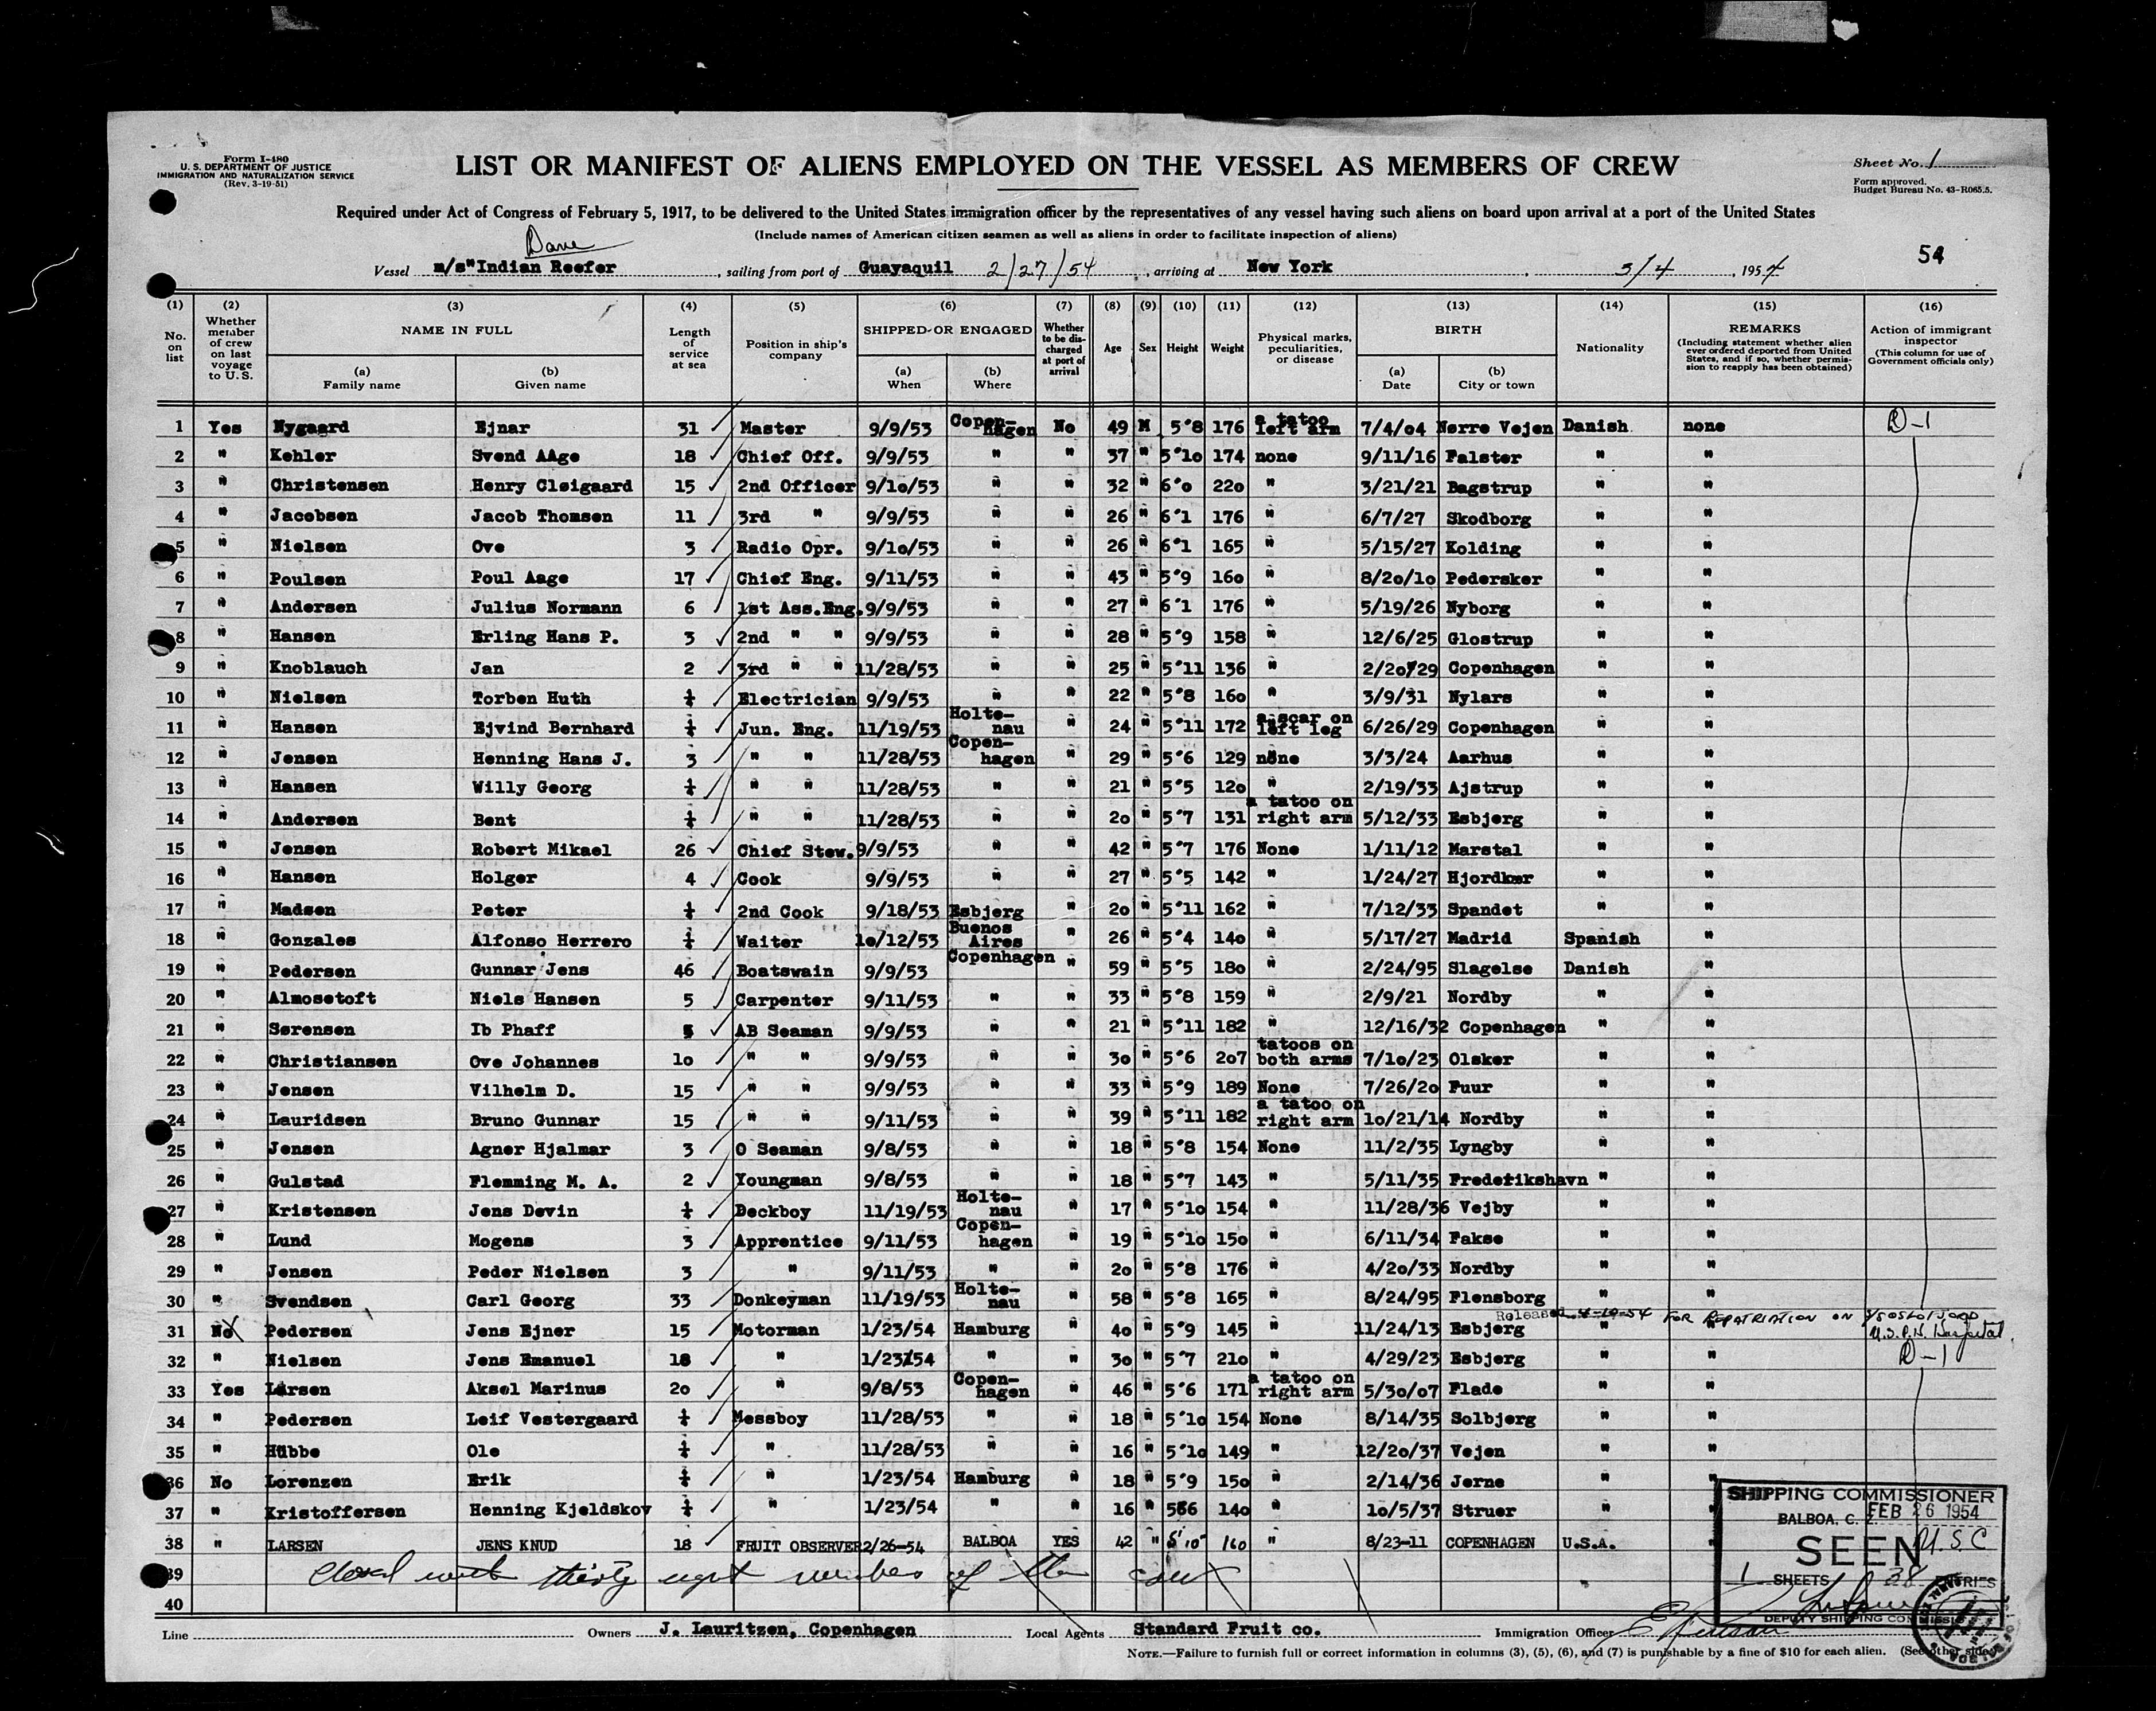 Form I-480
U. S. DEPARTMENT OF JUSTICE
IMMIGRATION AND NATURALIZATION SERVICE
(Rev. 3-19-51)
LIST OR MANIFEST OF ALIENS EMPLOYED ON THE VESSEL AS MEMBERS OF CREW
Sheet No. 1
Form approved.
Budget Bureau No. 43-R065.5.
Required under Act of Congress of February 5, 1917, to be delivered to the United States immigration officer by the representatives of any vessel having such aliens on board upon arrival at a port of the United States
(Include names of American citizen seamen as well as aliens in order to facilitate inspection of aliens)
54
Vessel m/s"Indian Reefer, sailing from port of Guayaquil 2/27/54, arriving at New York, 3/4, 1954
(1) (2) (3) (4) (5) (6) (7) (8) (9) (10) (11) (12) (13) (14) (15) (16)
No. on list Whether member of crew on last voyage to U. S. NAME IN FULL (a) Family name (b) Given name Length of service at sea Position in ship's company SHIPPED OR ENGAGED (a) When (b) Where Whether to be discharged at port of arrival Age Sex Height Weight Physical marks, peculiarities, or disease BIRTH (a) Date (b) City or town Nationality REMARKS (Including statement whether alien ever ordered deported from United States, and if so, whether permission to reapply has been obtained) Action of immigrant inspector (This column for use of Government officials only)
1 Yes Nygaard Ejnar 31 Master 9/9/53 Copenhagen No 49 M 5'8 176 a tatoo left arm 7/4/04 Nørre Vejen Danish none D-1
2 " Kehler Svend AAge 18 Chief Off. 9/9/53 " " 37 " 5'10 174 none 9/11/16 Falster " "
3 " Christensen Henry Cleigaard 15 2nd Officer 9/10/53 " " 32 " 6'0 220 " 3/21/21 Bagstrup " "
4 " Jacobsen Jacob Thomsen 11 3rd " 9/9/53 " " 26 " 6'1 176 " 6/7/27 Skodborg " "
5 " Nielsen Ove 3 Radio Opr. 9/10/53 " " 26 " 6'1 165 " 5/15/27 Kolding " "
6 " Poulsen Poul Aage 17 Chief Eng. 9/11/53 " " 43 " 5'9 160 " 8/20/10 Pedersker " "
7 " Andersen Julius Normann 6 1st Ass.Eng. 9/9/53 " " 27 " 6'1 176 " 5/19/26 Nyborg " "
8 " Hansen Erling Hans P. 3 2nd " " 9/9/53 " " 28 " 5'9 158 " 12/6/25 Glostrup " "
9 " Knoblauch Jan 2 3rd " " 11/28/53 " " 25 " 5'11 136 " 2/20/29 Copenhagen " "
10 " Nielsen Torben Huth Electrician 9/9/53 " " 22 " 5'8 160 " 3/9/31 Nylars " "
11 " Hansen Ejvind Bernhard Jun. Eng. 11/19/53 Holtenau " 24 " 5'11 172 a scar on left leg 6/26/29 Copenhagen " "
12 " Jensen Henning Hans J. 3 " " 11/28/53 Copenhagen " 29 " 5'6 129 none 3/3/24 Aarhus " "
13 " Hansen Willy Georg " " 11/28/53 " " 21 " 5'5 120 " 2/19/33 Ajstrup " "
14 " Andersen Bent " " 11/28/53 " " 20 " 5'7 131 a tatoo on right arm 5/12/33 Esbjerg " "
15 " Jensen Robert Mikael 26 Chief Stew. 9/9/53 " " 42 " 5'7 176 None 1/11/12 Marstal " "
16 " Hansen Holger 4 Cook 9/9/53 " " 27 " 5'5 142 " 1/24/27 Hjordkær " "
17 " Madsen Peter 2nd Cook 9/18/53 Esbjerg " 20 " 5'11 162 " 7/12/33 Spandet " "
18 " Gonzales Alfonso Herrero Waiter 10/12/53 Buenos Aires " 26 " 5'4 140 " 5/17/27 Madrid Spanish "
19 " Pedersen Gunnar Jens 46 Boatswain 9/9/53 Copenhagen " 59 " 5'5 180 " 2/24/95 Slagelse Danish "
20 " Almosetoft Niels Hansen 5 Carpenter 9/11/53 " " 33 " 5'8 159 " 2/9/21 Nordby " "
21 " Sørensen Ib Phaff 5 AB Seaman 9/9/53 " " 21 " 5'11 182 " 12/16/32 Copenhagen " "
22 " Christiansen Ove Johannes 10 " " 9/9/53 " " 30 " 5'6 207 tatoos on both arms 7/10/23 Olsker " "
23 " Jensen Vilhelm D. 15 " " 9/9/53 " " 33 " 5'9 189 None 7/26/20 Fuur " "
24 " Lauridsen Bruno Gunnar 15 " " 9/11/53 " " 39 " 5'11 182 a tatoo on right arm 10/21/14 Nordby " "
25 " Jensen Agner Hjalmar 3 O Seaman 9/8/53 " " 18 " 5'8 154 None 11/2/35 Lyngby " "
26 " Gulstad Flemming M. A. 2 Youngman 9/8/53 " " 18 " 5'7 143 " 5/11/35 Frederikshavn " "
27 " Kristensen Jens Devin Deckboy 11/19/53 Holtenau " 17 " 5'10 154 " 11/28/36 Vejby " "
28 " Lund Mogens 3 Apprentice 9/11/53 Copenhagen " 19 " 5'10 150 " 6/11/34 Fakse " "
29 " Jensen Peder Nielsen 3 " 9/11/53 " " 20 " 5'8 176 " 4/20/33 Nordby " "
30 " Svendsen Carl Georg 33 Donkeyman 11/19/53 Holtenau " 58 " 5'8 165 " 8/24/95 Flensborg " "
Released FOR REPATRIATION ON
31 No Pedersen Jens Ejner 15 Motorman 1/23/54 Hamburg " 40 " 5'9 145 " 11/24/13 Esbjerg " " U.S.P.H. Hospital.
32 " Nielsen Jens Emanuel 18 " 1/23/54 " " 30 " 5'7 210 " 4/29/23 Esbjerg " " D-1
33 Yes Larsen Aksel Marinus 20 " 9/8/53 Copenhagen " 46 " 5'6 171 a tatoo on right arm 5/30/07 Flade " "
34 " Pedersen Leif Vestergaard Messboy 11/28/53 " " 18 " 5'10 154 None 8/14/35 Solbjerg " "
35 " Hübbe Ole " 11/28/53 " " 16 " 5'10 149 " 12/20/37 Vejen " "
36 No Lorenzen Erik " 1/23/54 Hamburg " 18 " 5'9 150 " 2/14/36 Jerne " "
37 " Kristoffersen Henning Kjeldskov " 1/23/54 " " 16 " 5'6 140 " 10/5/37 Struer " "
38 " LARSEN JENS KNUD 18 FRUIT OBSERVER 2/26-54 BALBOA YES 42 " 5'10" 160 " 8/23-11 COPENHAGEN U.S.A. " U.S.C
39 Closed with thirty eight members of the crew
40
SHIPPING COMMISSIONER
BALBOA, C. Z. FEB 26 1954
SEEN
1 SHEETS 38 ENTRIES
DEPUTY SHIPPING COMMISSIONER
Line Owners J. Lauritzen, Copenhagen Local Agents Standard Fruit co. Immigration Officer
NOTE.—Failure to furnish full or correct information in columns (3), (5), (6), and (7) is punishable by a fine of $10 for each alien. (See other side)